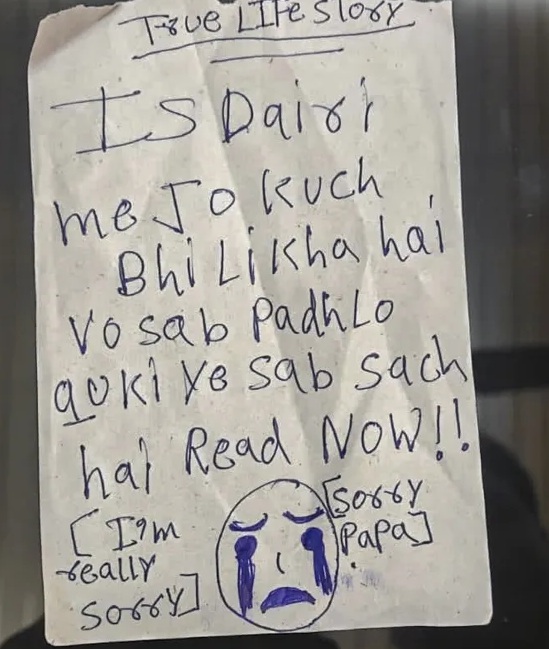 True Life Story
IS Dairi
me Jo kuch
Bhi Likha hai
Vo sab Padh Lo
quki ye sab sach
hai Read NOW!!
[Sorry
Papa]
[I'm
really
Sorry]